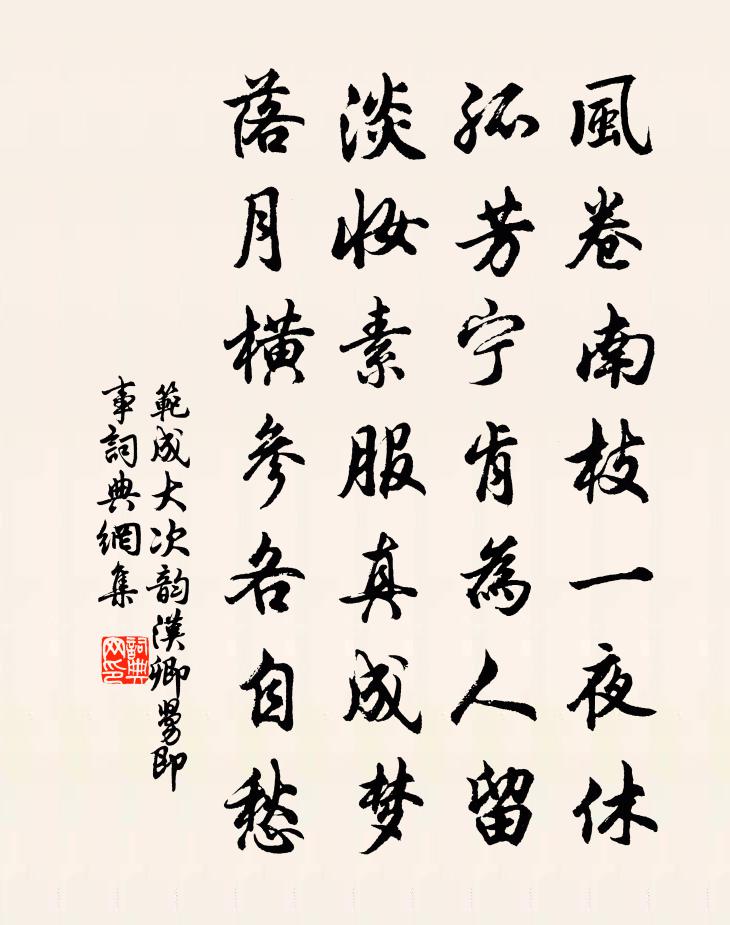 風卷南枝一夜休
孤芳宁肯為人留
淡妆素服真成梦
落月橫參各自愁
範成大次韵漢卿舅即
事詞典網集
詞典
网印